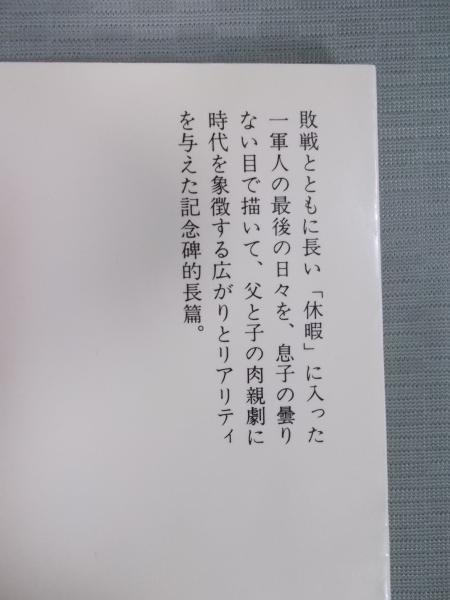 敗戦とともに長い「休暇」に入った
一軍人の最後の日々を、息子の曇り
ない目で描いて、父と子の肉親劇に
時代を象徴する広がりとリアリティ
を与えた記念碑的長篇。